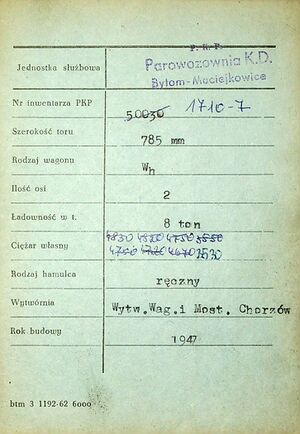 P. K. P.
Jednostka służbowa Parowozownia K.D.
Bytom-Maciejkowice
Nr inwentarza PKP 50030 1710-7
Szerokość toru 785 mm
Rodzaj wagonu Wh
Ilość osi 2
Ładowność w t. 8 ton
Ciężar własny 4830 4820 4750 3550
4750 4720 4670 3530
Rodzaj hamulca ręczny
Wytwórnia Wytw.Wag.i Most. Chorzów
Rok budowy 1947
btm 3 1192-62 6000